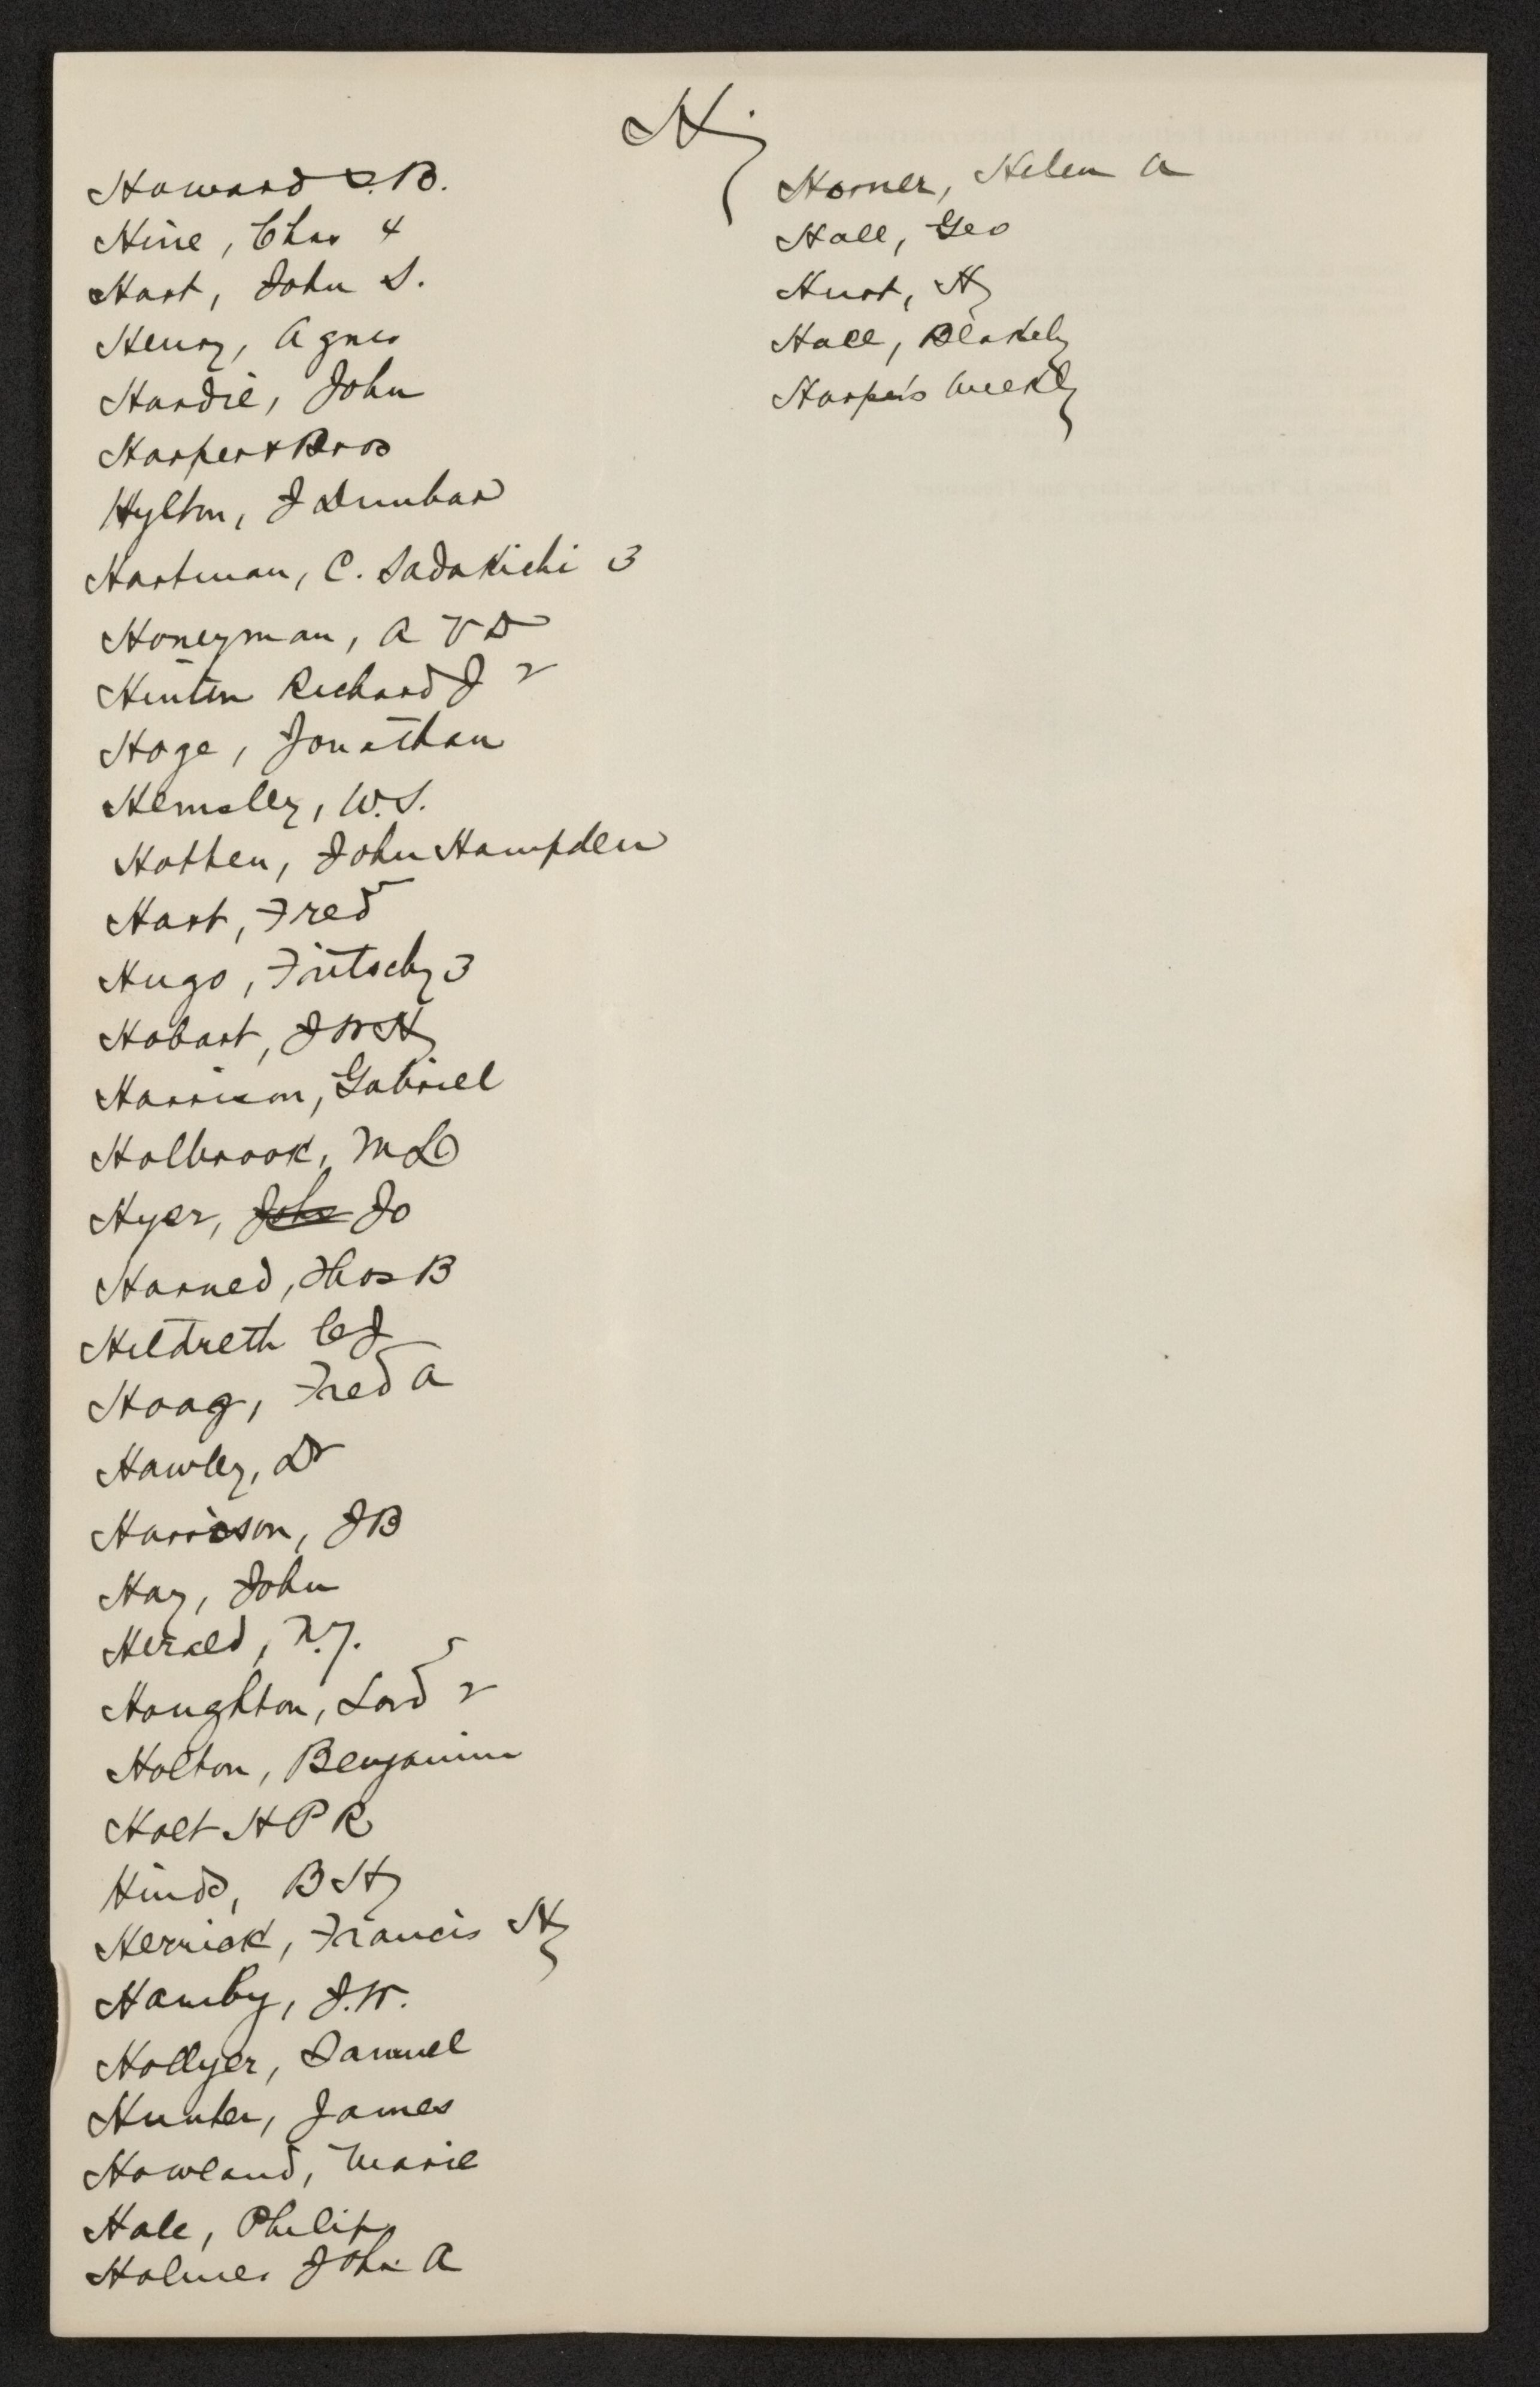 H
Howard C. B.
Hine, Chas 4
Hart, John S.
Henry, Agnes
Hardie, John
Harper & Bros
Hylton, J Dunbar
Hartman, C. Sadakichi 3
Honeyman, A V D
Hinton Richard J 2
Hoge, Jonathan
Hemsley, W. S.
Hothen, John Hampden
Hart, Fred
Hugo, Fritschy 3
Hobart, J W H
Harrison, Gabriel
Holbrook, M L
Hyer, John Jo
Harned, Thos B
Hildreth C J
Hoag, Fred A
Hawley, Dr
Harrison, J B
Hay, John
Herald, N. Y.
Houghton, Lord 2
Holton, Benjamin
Holt H P R
Hinds, B H
Herrick, Francis H
Hamby, J. W.
Hollyer, Samuel
Hunter, James
Howland, Marie
Hale, Philip
Holmes John A
Horner, Helen A
Hall, Geo
Hurt, H
Hall, Blakely
Harper's Weekly